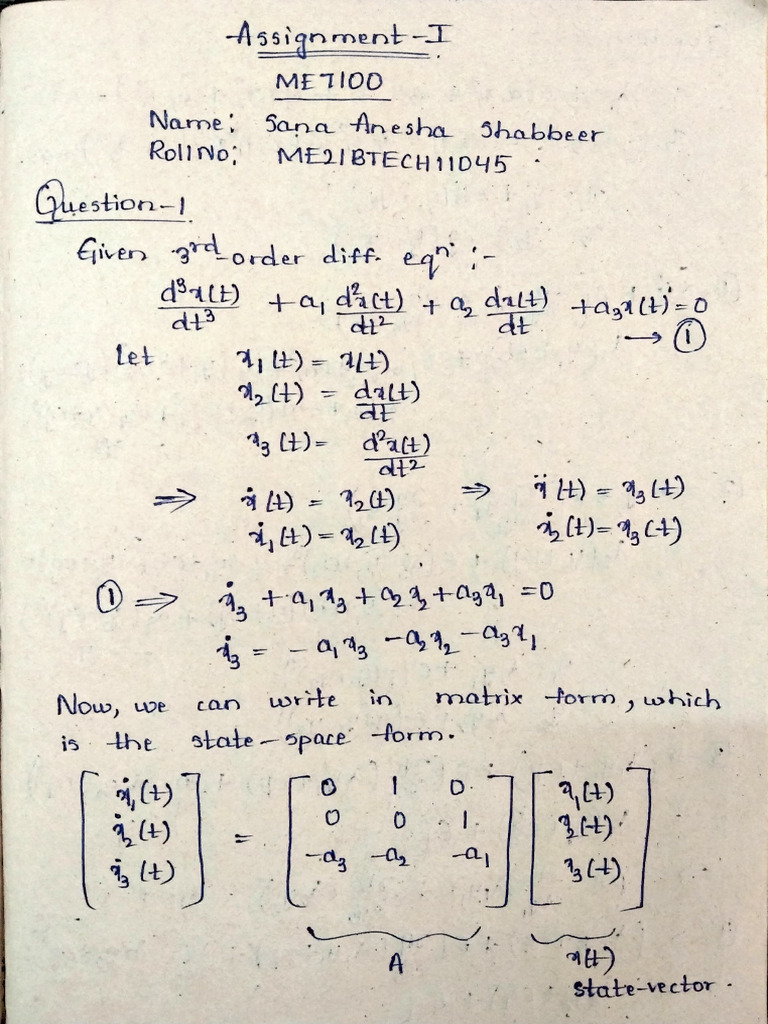 Assignment-I
ME7100
Name: Sana Anesha Shabbeer
Roll No: ME21BTECH11045.
Question-1
Given 3rd-order diff. eqn :-
d³x(t)/dt³ + a₁ d²x(t)/dt² + a₂ dx(t)/dt + a₃x(t) = 0
→ ①
Let x₁(t) = x(t)
x₂(t) = dx(t)/dt
x₃(t) = d²x(t)/dt²
⇒ ẋ(t) = x₂(t) ⇒ ẍ(t) = x₃(t)
ẋ₁(t) = x₂(t) ẋ₂(t) = x₃(t)
① ⇒ ẋ₃ + a₁x₃ + a₂x₂ + a₃x₁ = 0
ẋ₃ = -a₁x₃ - a₂x₂ - a₃x₁
Now, we can write in matrix form, which
is the state-space form.
[ẋ₁(t) 0 1 0 x₁(t)
ẋ₂(t) = 0 0 1 x₂(t)
ẋ₃(t)] -a₃ -a₂ -a₁ x₃(t)]
A x(t)
state-vector.